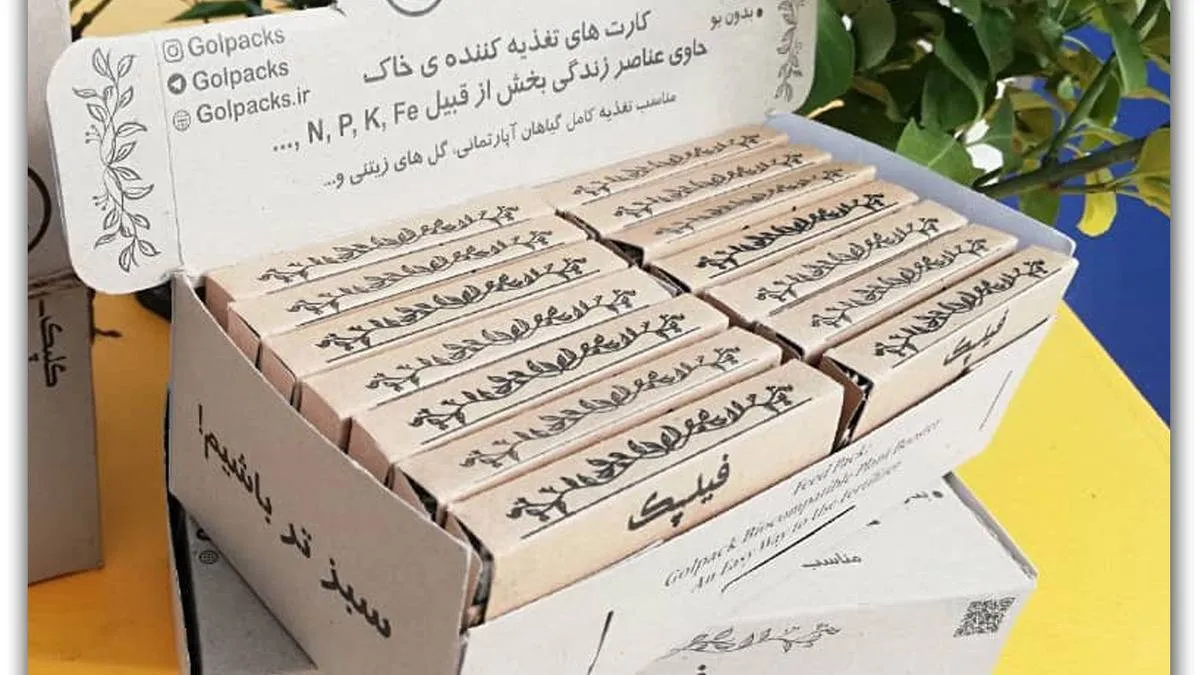 Golpacks
Golpacks
Golpacks.ir
بدون بو
کارت های تغذیه کننده ی خاک
حاوی عناصر زندگی بخش از قبیل N, P, K, Fe , ...
مناسب تغذیه کامل گیاهان آپارتمانی، گل های زینتی و...
فیلپک
فیلپک
سبز تر باشیم!
Feed Pack:
Golpack Biocompatible Plant Booster
An Easy Way to the Fertilizer
مناسب